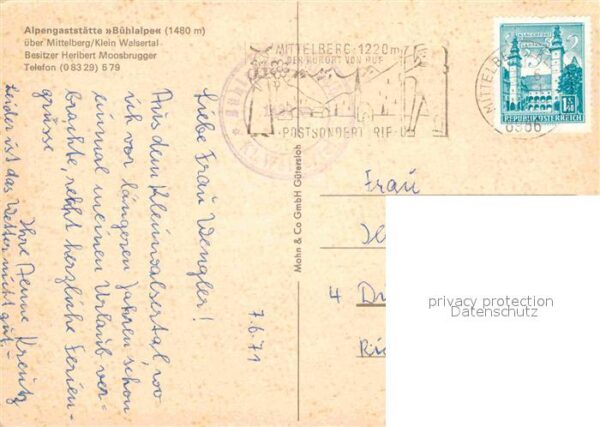 Alpengaststätte »Bühlalpe« (1480 m)
über Mittelberg/Klein Walsertal
Besitzer Heribert Moosbrugger
Telefon (0 83 29) 5 79
MITTELBERG 1220 m
DER KURORT VON RUF
POSTSONDERTARIF
MITTELBERG
6986
REPUBLIK ÖSTERREICH
Mohn & Co GmbH Gütersloh
7.6.71
Liebe Frau Wengler!
Aus dem Kleinwalsertal, wo
ich vor längeren Jahren schon
einmal meinen Urlaub ver-
brachte, recht herzliche Ferien-
grüsse
Ihre Kreutz
Leider ist das Wetter nicht gut.-
Frau
4 D
privacy protection
Datenschutz